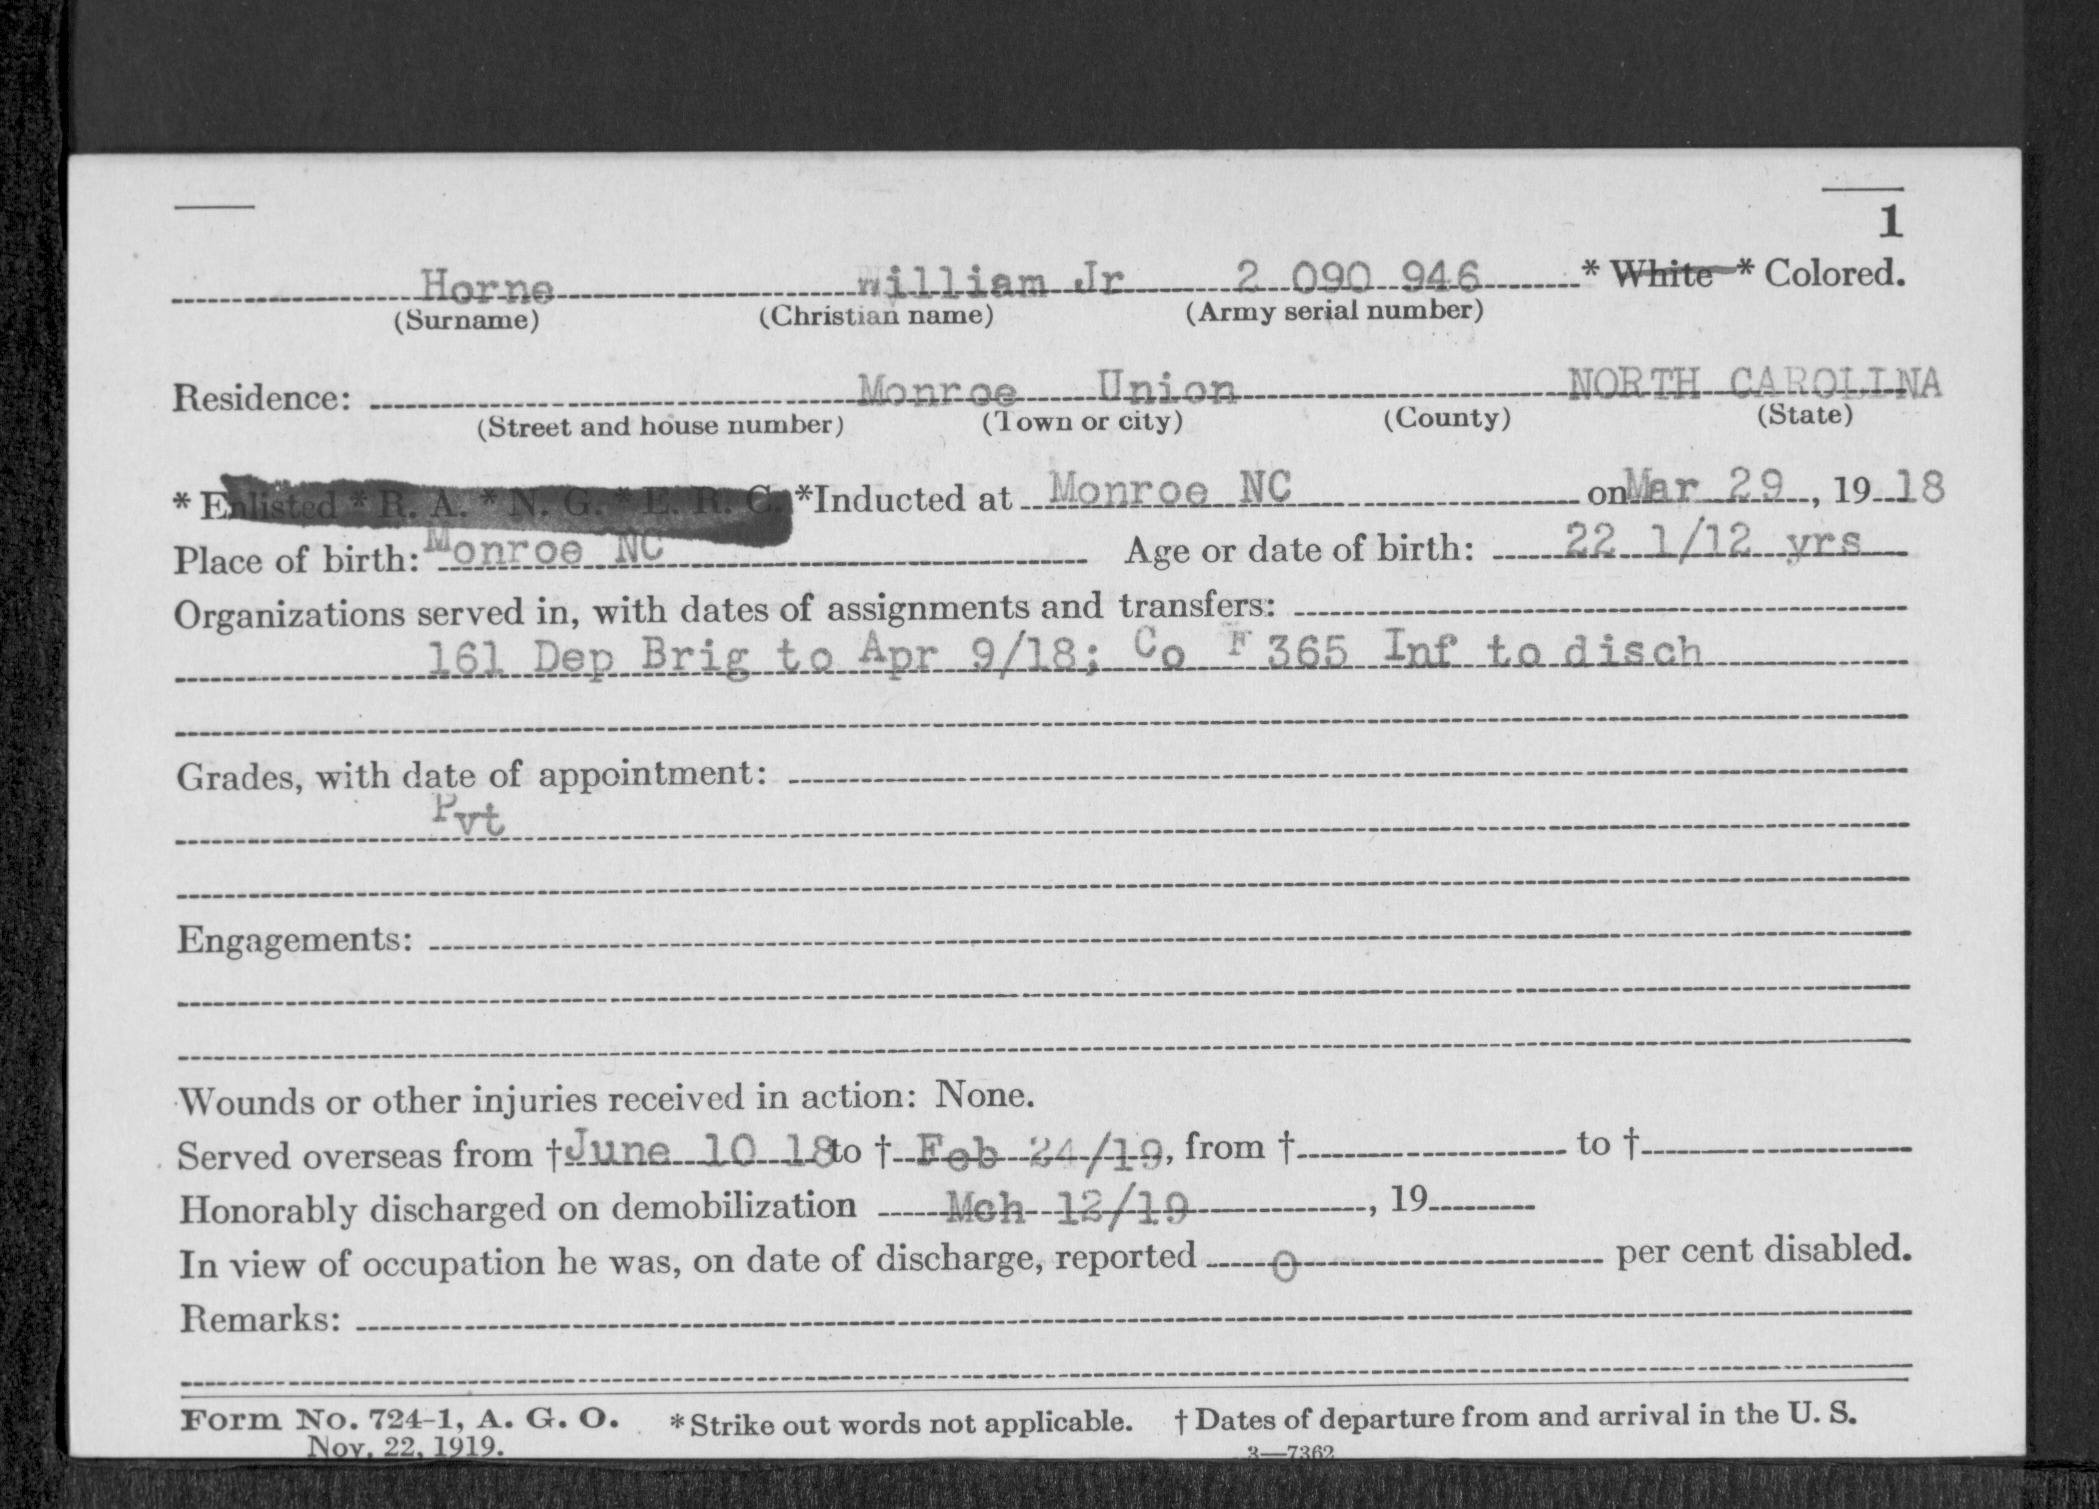 1
Horne William Jr 2 090 946 * White * Colored.
(Surname) (Christian name) (Army serial number)
Residence: Monroe Union NORTH CAROLINA
(Street and house number) (Town or city) (County) (State)
* Enlisted * R. A. * N. G. * E. R. C. *Inducted at Monroe NC on Mar 29, 19 18
Place of birth: Monroe NC Age or date of birth: 22 1/12 yrs
Organizations served in, with dates of assignments and transfers:
161 Dep Brig to Apr 9/18; Co F 365 Inf to disch
Grades, with date of appointment:
Pvt
Engagements:
Wounds or other injuries received in action: None.
Served overseas from † June 10 18 to † Feb 24/19, from † to †
Honorably discharged on demobilization Mch 12/19, 19
In view of occupation he was, on date of discharge, reported 0 per cent disabled.
Remarks:
Form No. 724-1, A. G. O. * Strike out words not applicable. † Dates of departure from and arrival in the U. S.
Nov. 22, 1919. 3—7362